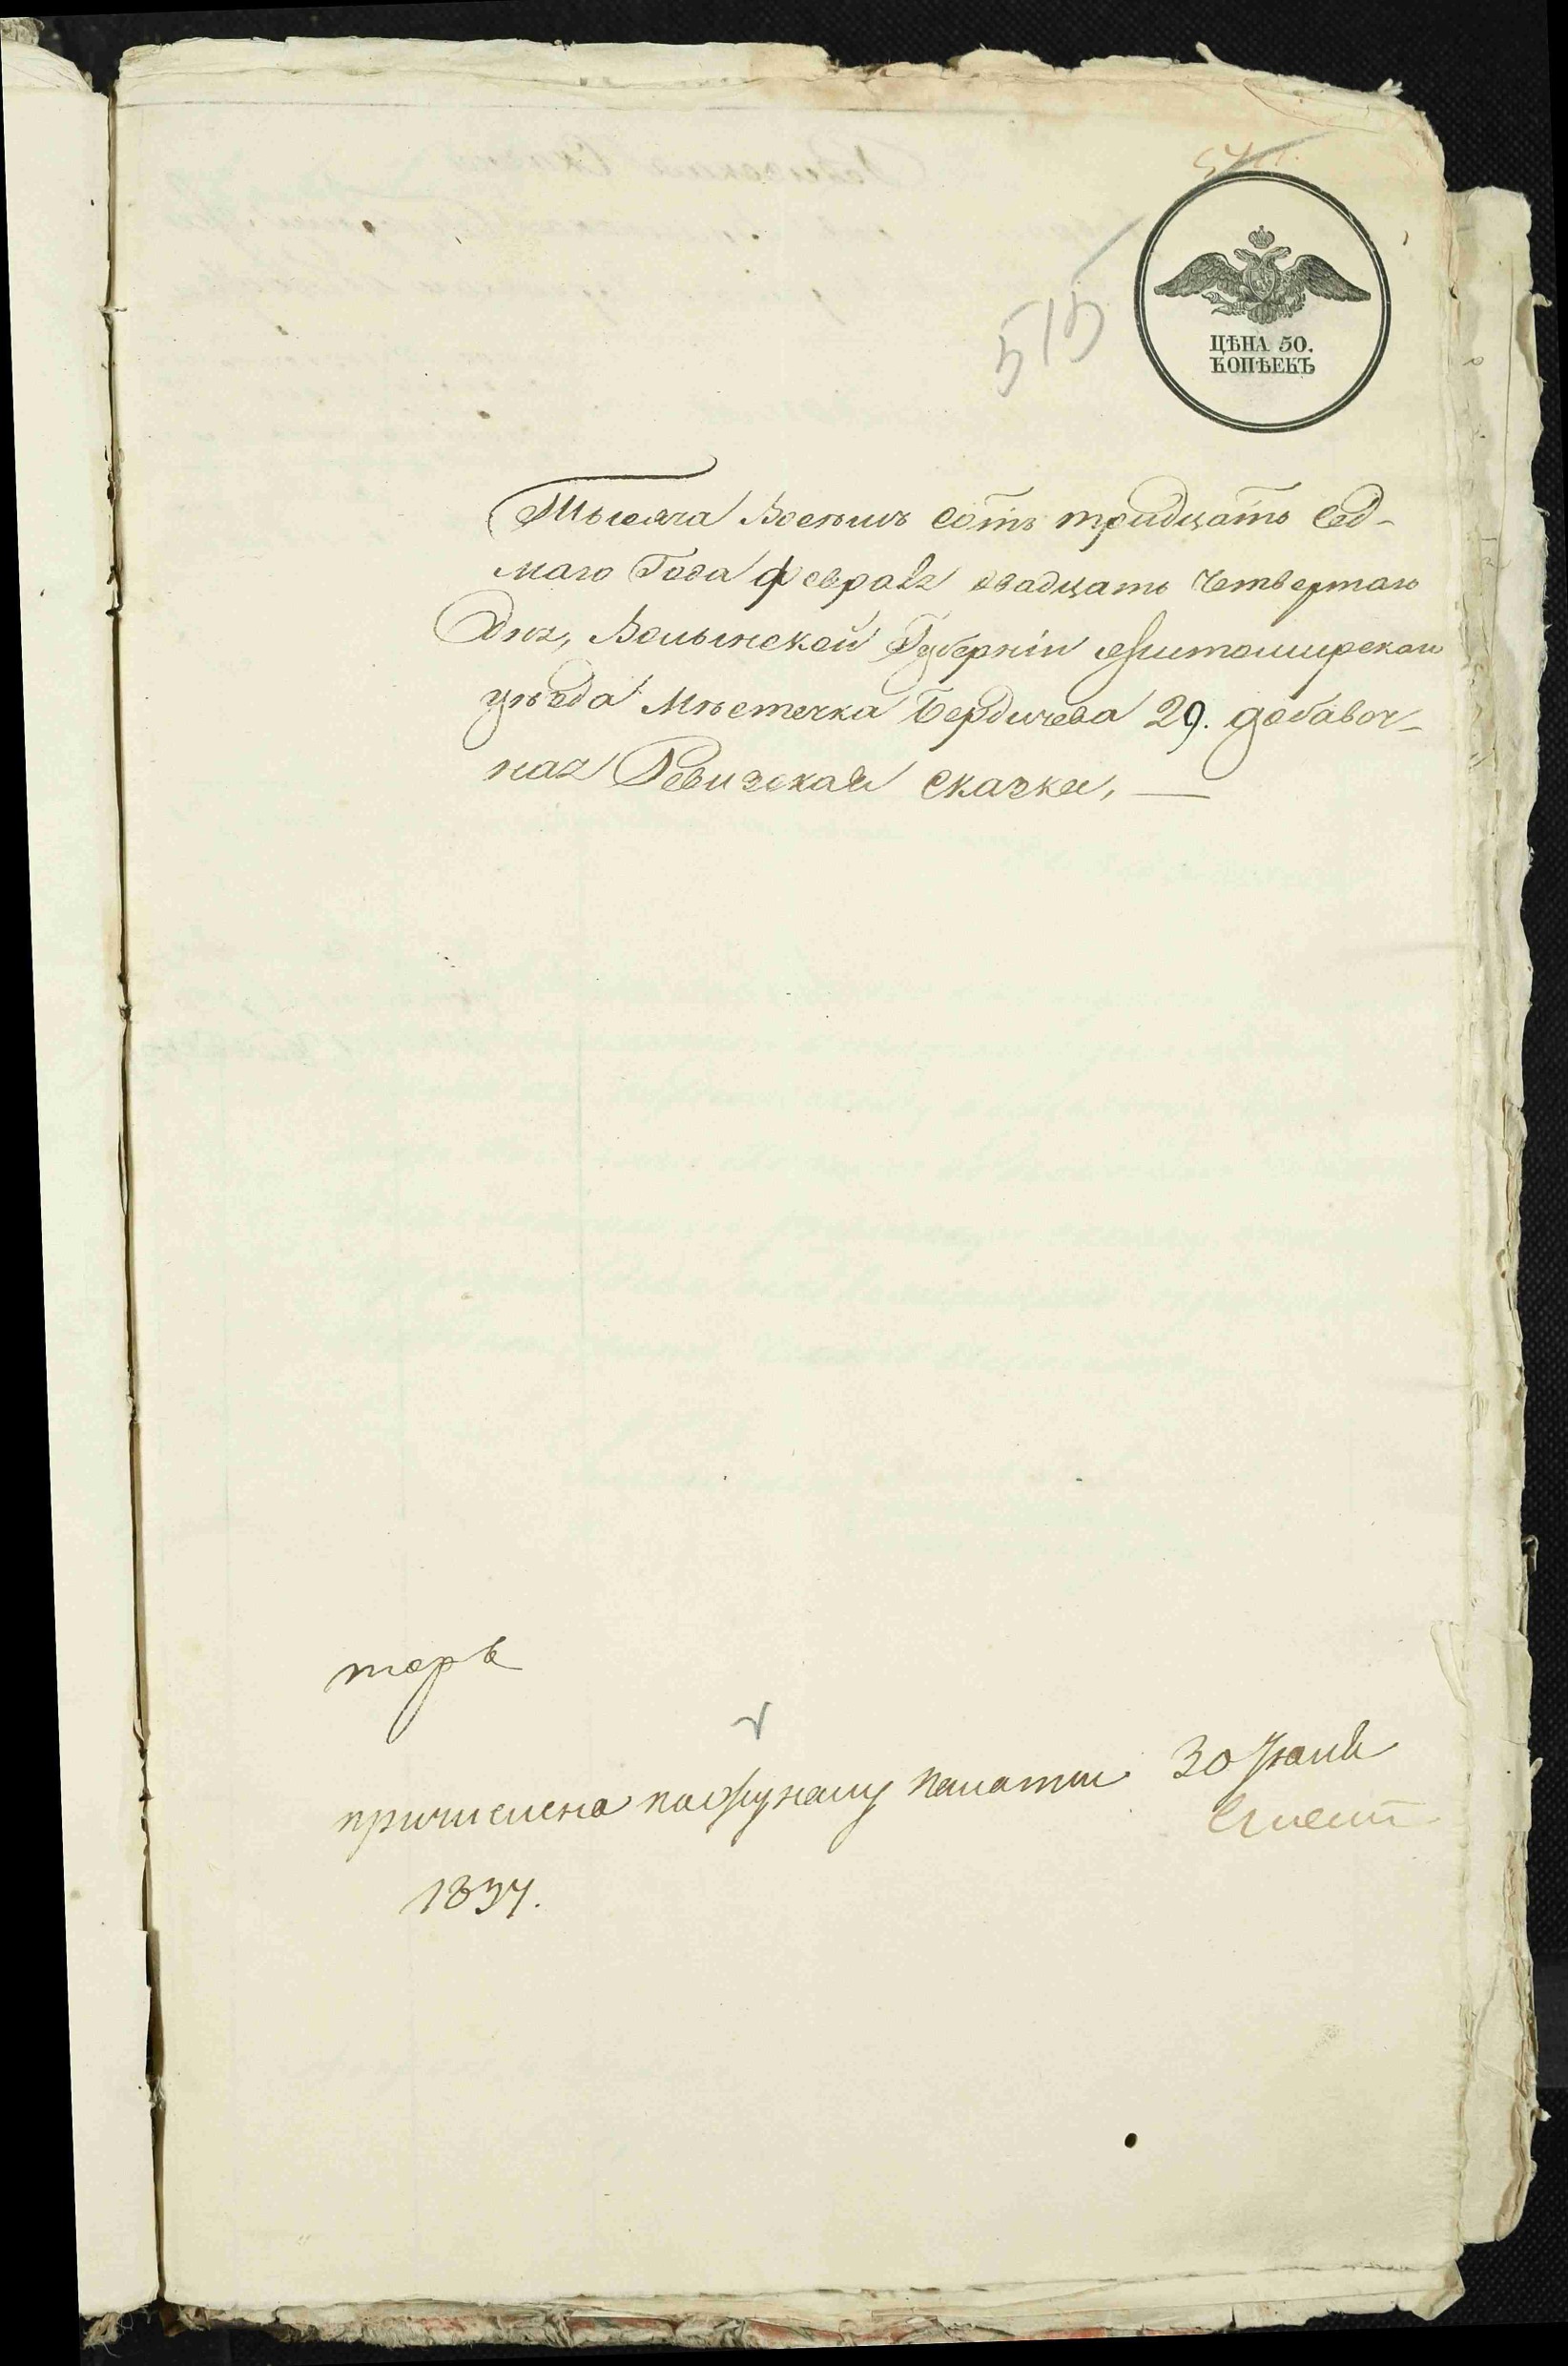 515
ЦѢНА 50.
КОПѢЕКЪ
Тысяча Восемь Сотъ тридцать Сед-
маго Года Февраля двадцать Четвертаго
Дня, Волынской Губерніи Житомирскаго
уѣзда Мѣстечка Бердичева 29. добавоч-
ная Ревизская Сказка,
причислена по журналу палаты 30 Июня
1837.